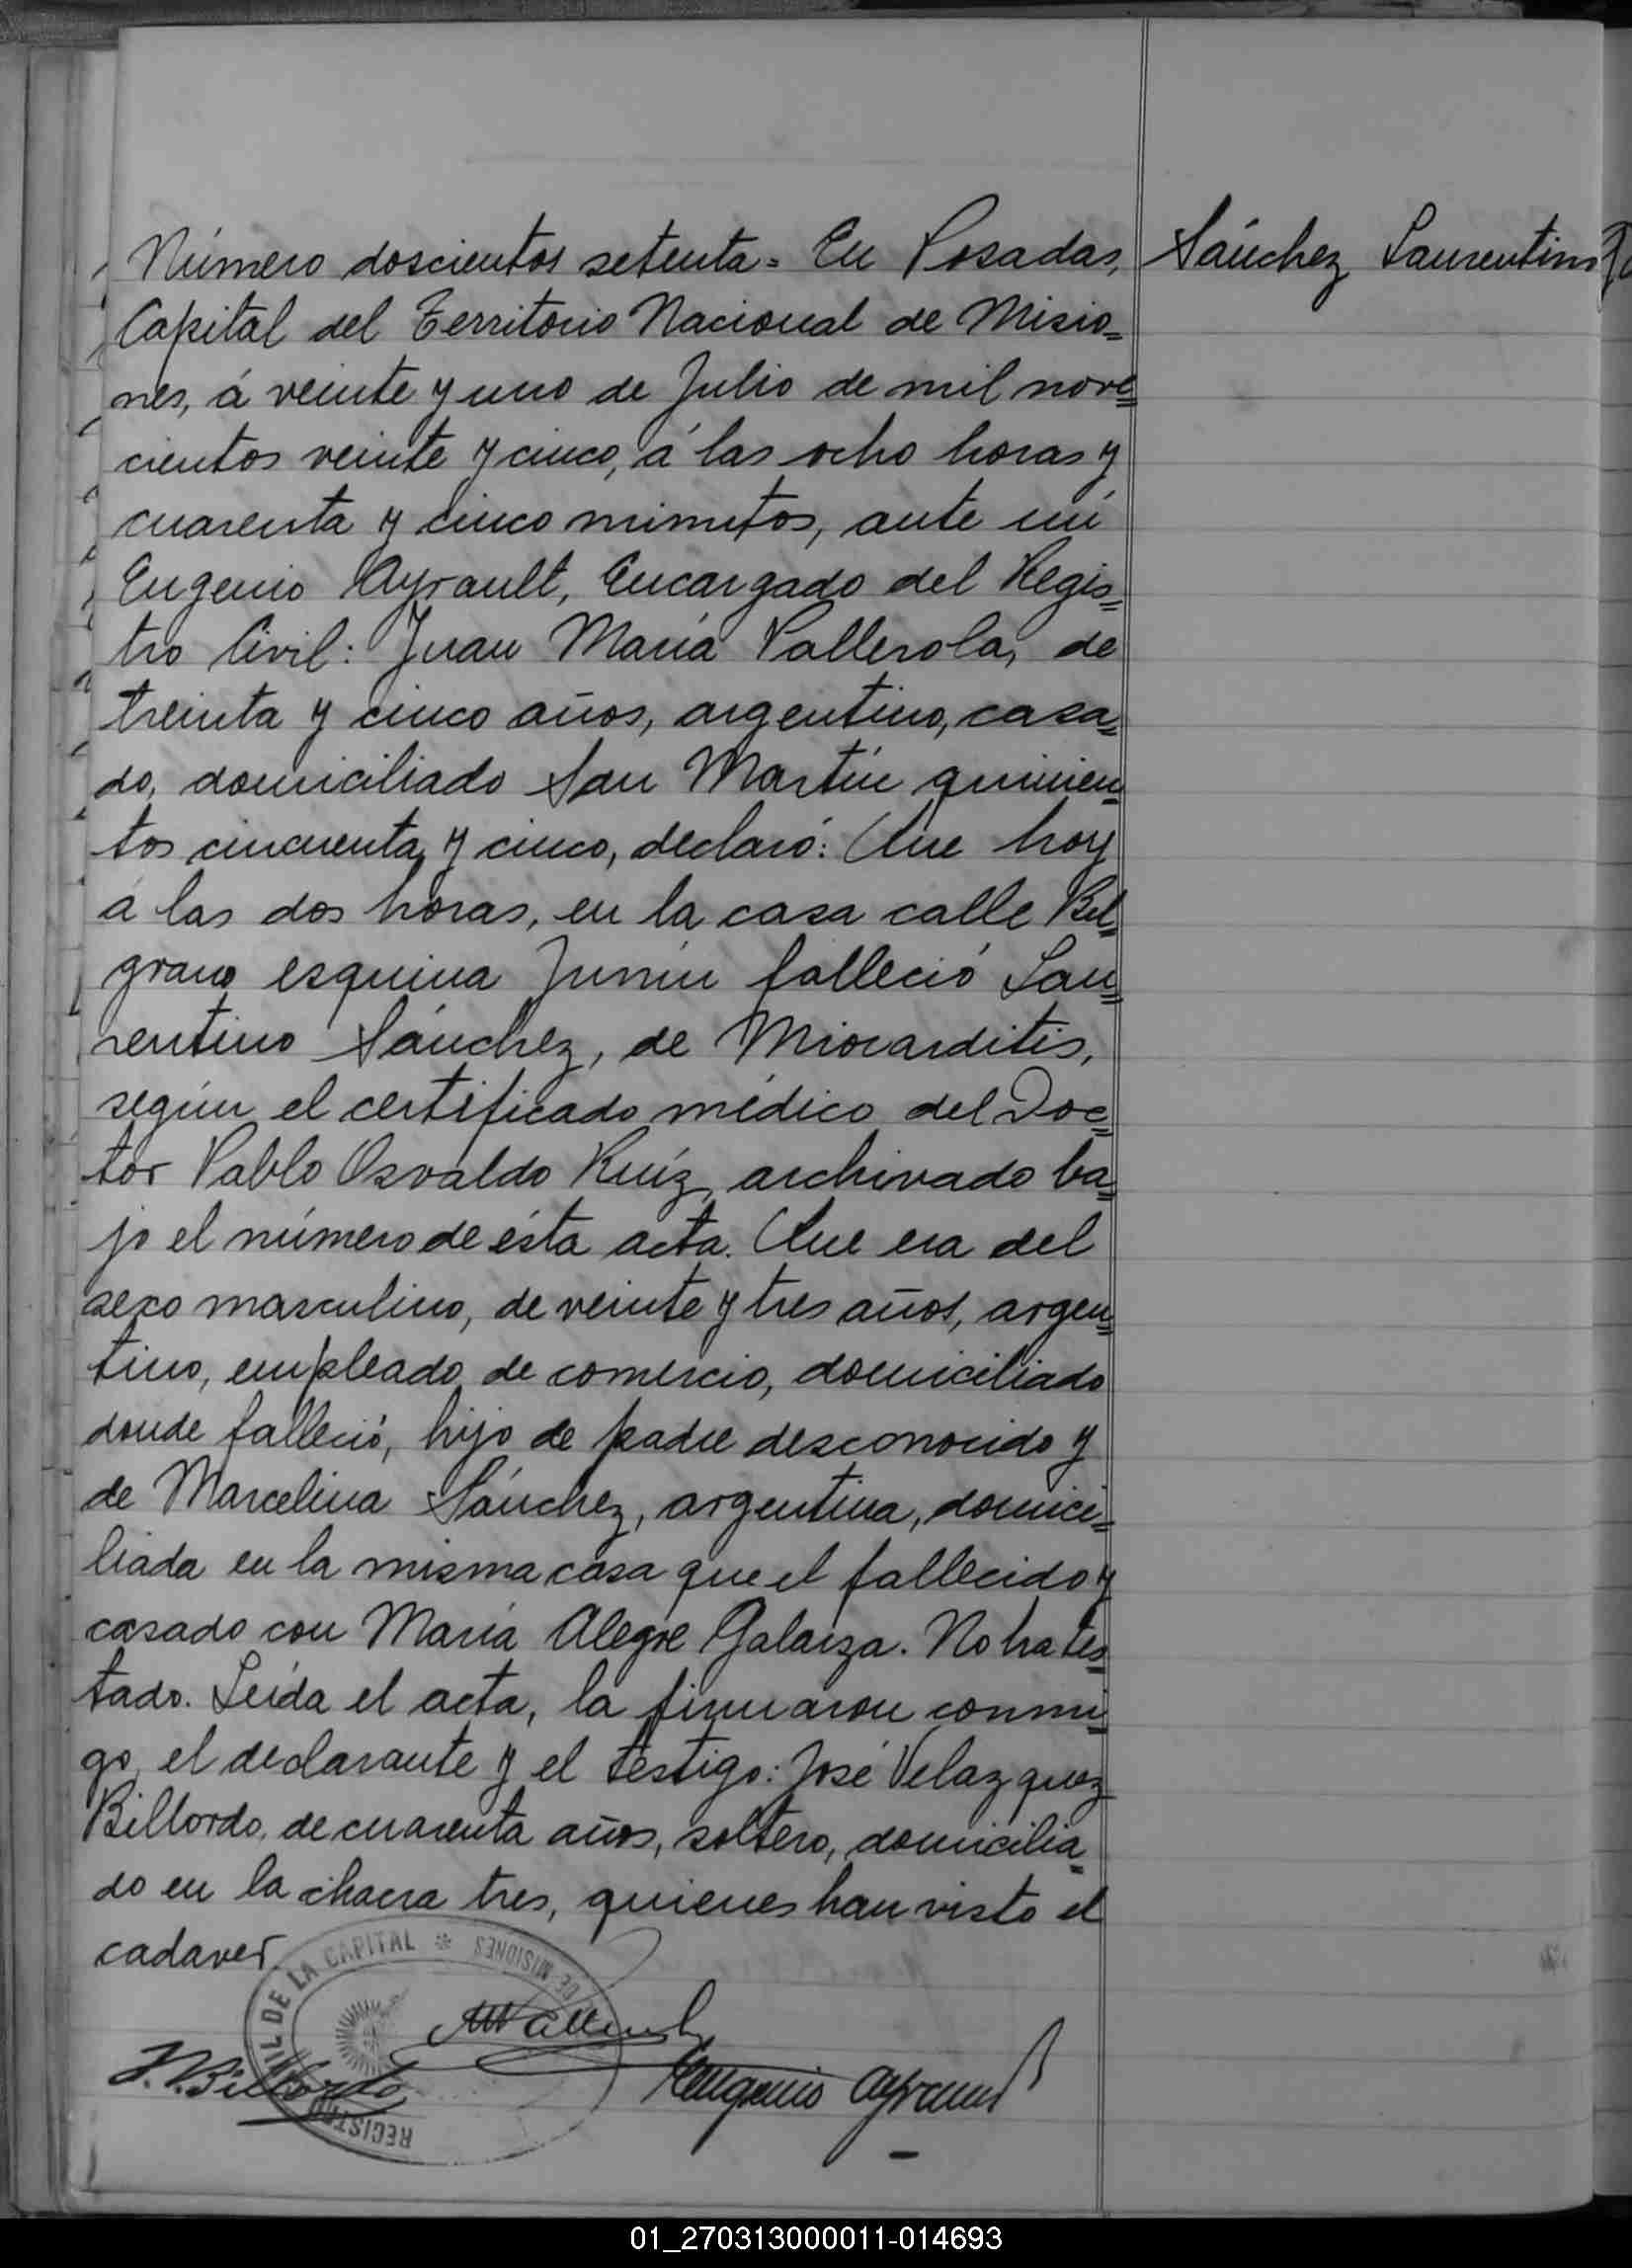 Número doscientos setenta = En Posadas,
Sánchez Laurentino
Capital del Territorio Nacional de Misio=
nes, á veinte y uno de Julio de mil nove=
cientos veinte y cinco, á las ocho horas y
cuarenta y cinco minutos, ante mí
Eugenio Ayrault, Encargado del Regis=
tro Civil: Juan María Vallerola, de
treinta y cinco años, argentino, casa=
do, domiciliado San Martín quinien=
tos cincuenta y cinco, declaró: Que hoy
á las dos horas, en la casa calle Bel=
grano esquina Junín falleció Lau=
rentino Sánchez, de Miocarditis,
según el certificado médico del Doc=
tor Pablo Osvaldo Ruíz, archivado ba=
jo el número de ésta acta. Que era del
sexo masculino, de veinte y tres años, argen=
tino, empleado de comercio, domiciliado
donde falleció, hijo de padre desconocido y
de Marcelina Sánchez, argentina, domici=
liada en la misma casa que el fallecido y
casado con María Alegre Galarza. No ha tes=
tado. Leída el acta, la firmaron conmi=
go, el declarante y el testigo: José Velazquez
Billordo, de cuarenta años, soltero, domicilia=
do en la chacra tres, quienes han visto el
cadaver.
REGISTRO CIVIL DE LA CAPITAL * DE MISIONES
J. V. Billordo
Eugenio Ayrault
01_270313000011-014693